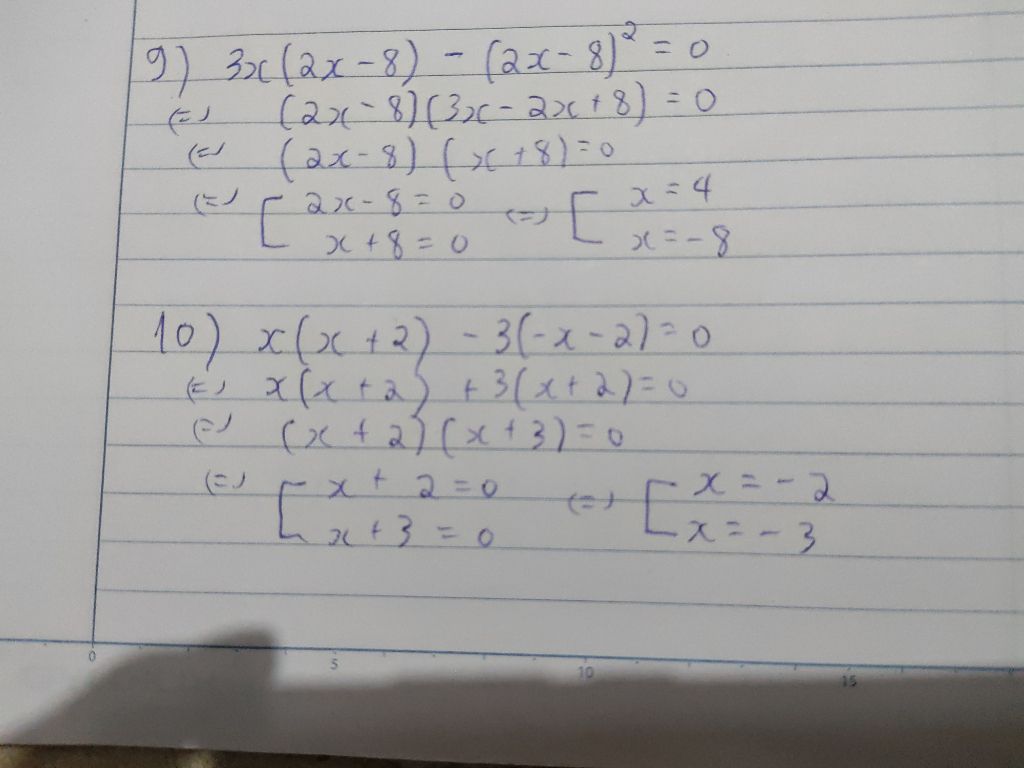 9) 3x(2x-8) - (2x-8)² = 0
(=) (2x-8)(3x-2x+8) = 0
(=) (2x-8) (x+8) = 0
(=) [ 2x-8 = 0 (=) [ x = 4
x+8 = 0 x = -8
10) x(x+2) - 3(-x-2) = 0
(=) x(x+2) + 3(x+2) = 0
(=) (x+2)(x+3) = 0
(=) [ x + 2 = 0 (=) [ x = -2
x+3 = 0 x = -3
0 5 10 15